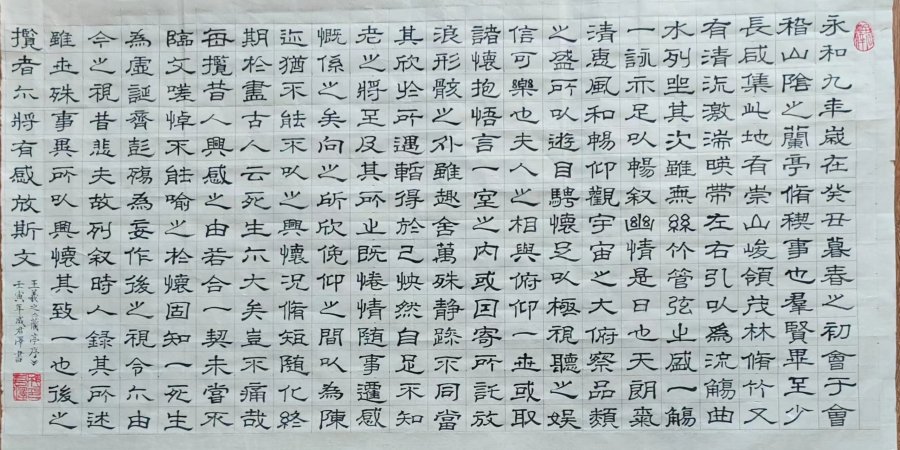 永和九年歲在癸丑暮春之初會于會
稽山陰之蘭亭脩稧事也羣賢畢至少
長咸集此地有崇山峻領茂林脩竹又
有清流激湍暎帶左右引以為流觴曲
水列坐其次雖無絲竹管弦之盛一觴
一詠亦足以暢叙幽情是日也天朗氣
清惠風和暢仰觀宇宙之大俯察品類
之盛所以遊目騁懷足以極視聽之娛
信可樂也夫人之相與俯仰一世或取
諸懷抱悟言一室之内或因寄所託放
浪形骸之外雖趣舍萬殊静躁不同當
其欣於所遇暫得於己怏然自足不知
老之將至及其所之既惓情隨事遷感
慨係之矣向之所欣俛仰之間以為陳
迹猶不能不以之興懷況脩短隨化終
期於盡古人云死生亦大矣豈不痛哉
每攬昔人興感之由若合一契未嘗不
臨文嗟悼不能喻之於懷固知一死生
為虛誕齊彭殤為妄作後之視今亦由
今之視昔悲夫故列叙時人錄其所述
雖世殊事異所以興懷其致一也後之
攬者亦將有感於斯文
王羲之《蘭亭序》
壬寅年 書